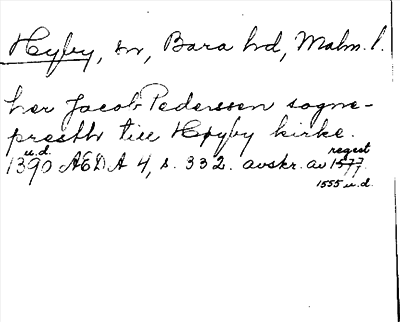 Hyby, sn, Bara hd, Malm. l.
her Jacob Pederssen sogne-
presth till Hyby kirke.
u.d. regest
1390 AEDA 4, s. 332. avskr. av 1577
1555 u.d.